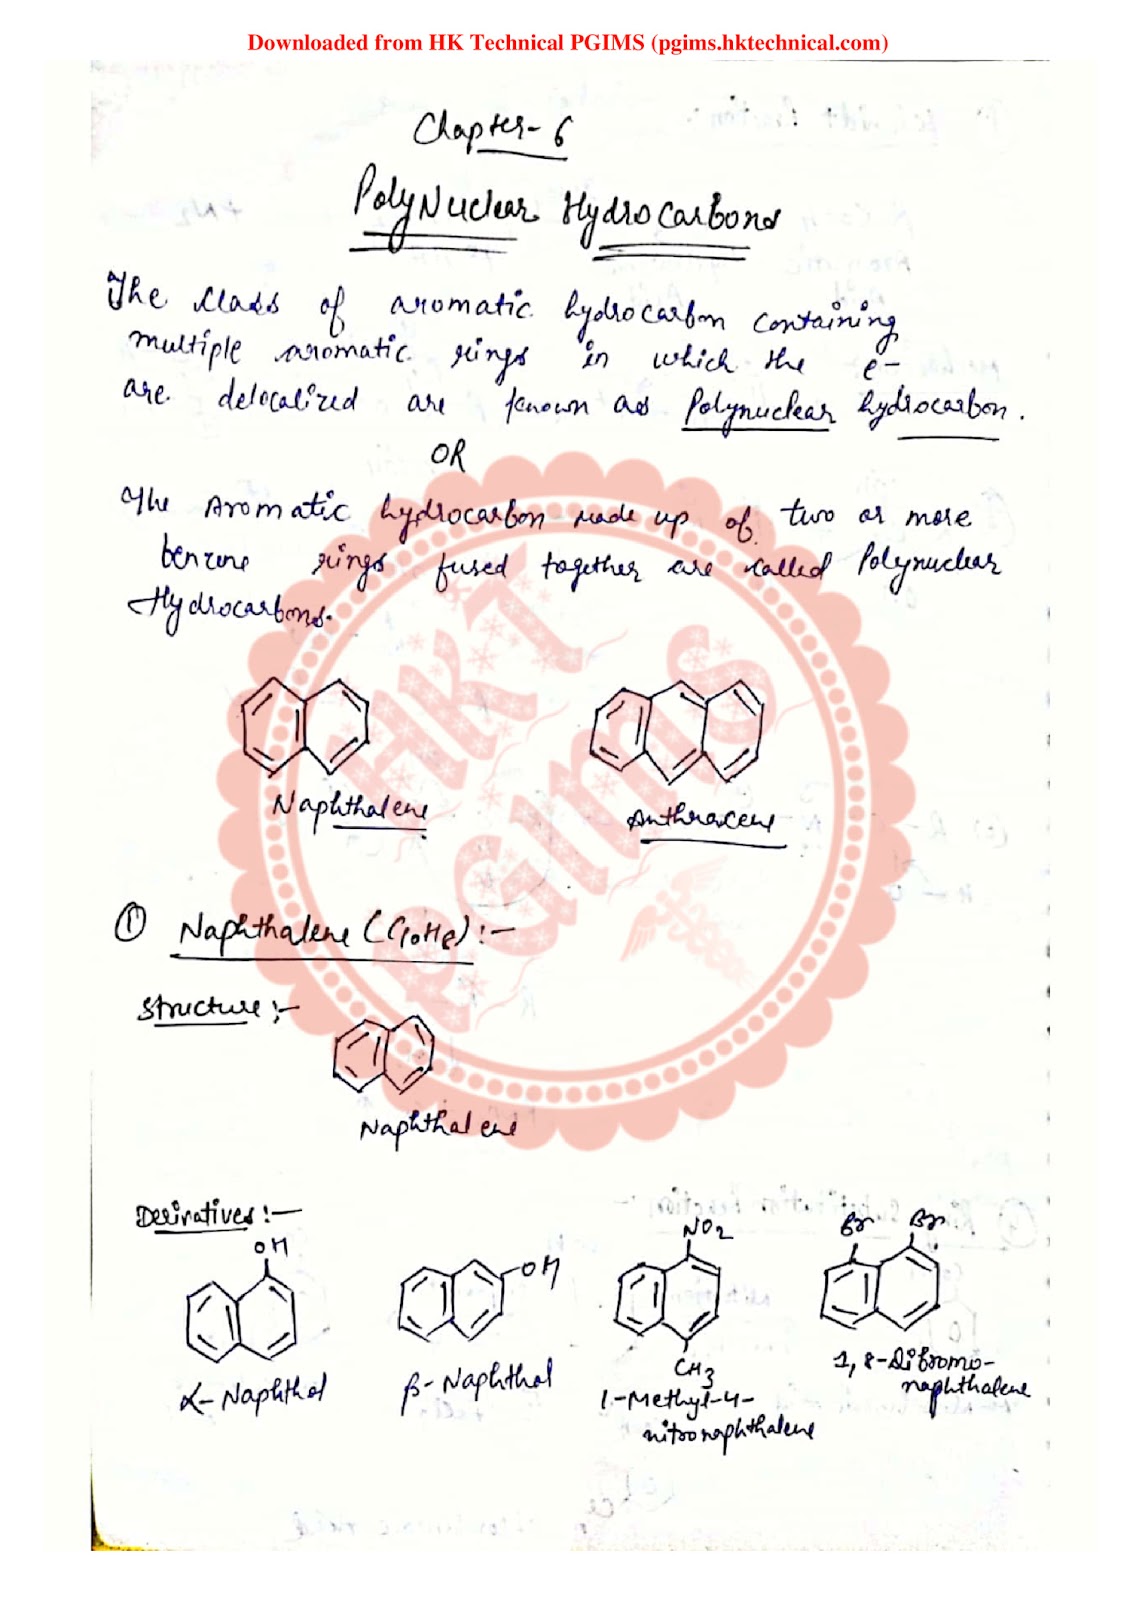 Downloaded from HK Technical PGIMS (pgims.hktechnical.com)
Chapter-6
PolyNuclear Hydrocarbons
The class of aromatic hydrocarbon containing
multiple aromatic rings in which the e-
are delocalized are known as Polynuclear hydrocarbon.
OR
The Aromatic hydrocarbon made up of two or more
benzene rings fused together are called Polynuclear
Hydrocarbons.
Naphthalene
Anthracene
HKT
PGIMS
① Naphthalene (C10H8) :-
Structure :-
Naphthalene
Derivatives :-
OH
α-Naphthol
OH
β-Naphthol
NO2
CH3
1-Methyl-4-
nitronaphthalene
Br Br
1,8-Dibromo-
naphthalene